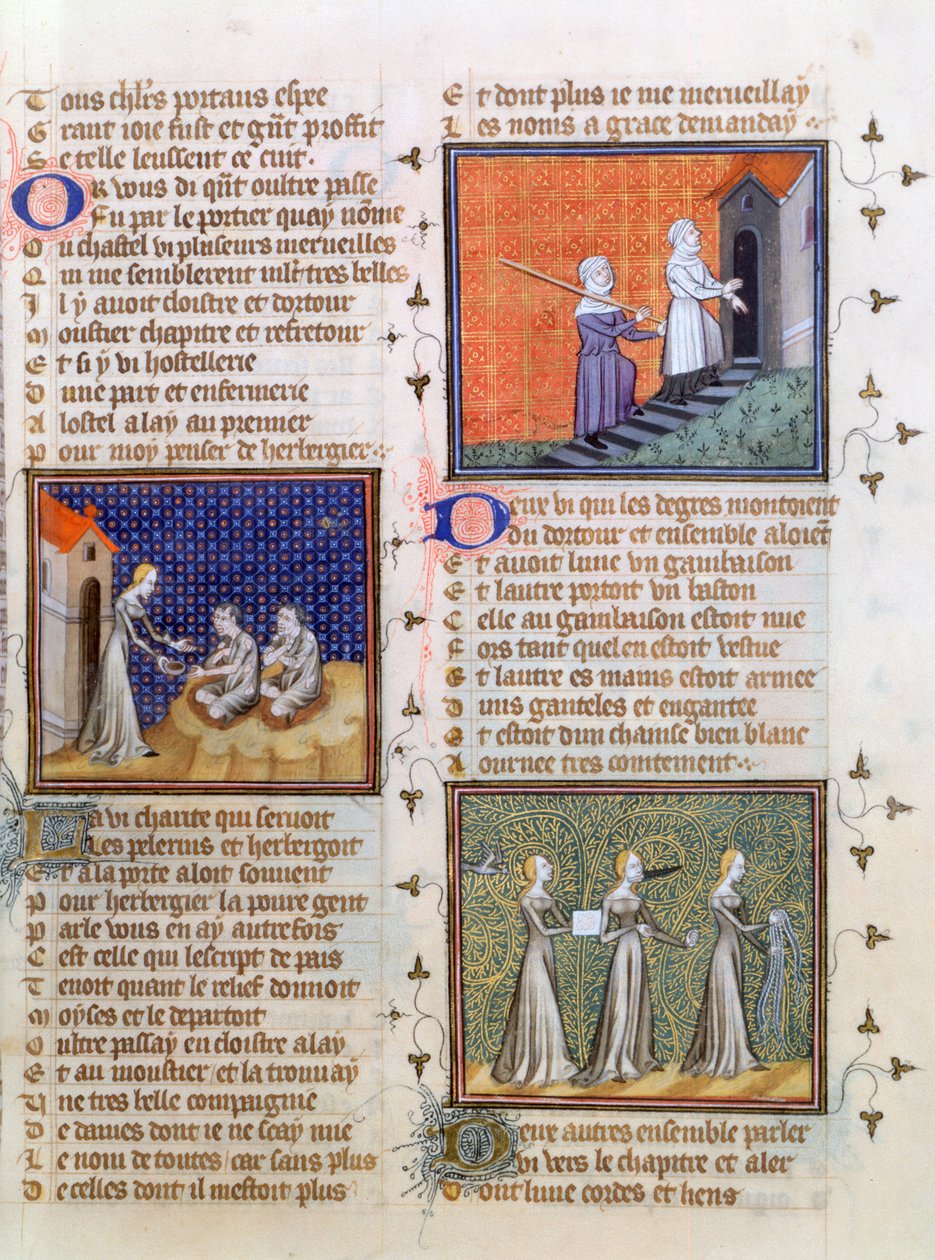 Tous chlrs portans espee
Grant ioie fust et gnt proffit
Se telle leussent ce cuit.
Or vous di qnt oultre passe
Fu par le portier quay nome
Ou chastel vi pluseurs merveilles
Qui me semblerent mlt tres belles
Il y avoit cloistre et dortour
Moustier chapitre et refretour
Et si y vi hostellerie
Dune part et enfermerie
A lostel alay au premier
Pour moy penser de herbergier
La vi charite qui servoit
Les pelerins et herbergoit
Et a la porte aloit souvent
Pour herbergier la poure gent
Parle vous en ay autrefois
Cest celle qui lescript de pais
Tenoit quant le relief donnoit
Moyses et le departoit
Oultre passay en cloistre alay
Et au moustier / et la trouvay
Une tres belle compaignie
De dames dont ie ne scay mie
Le nom de toutes / car sans plus
De celles dont il mestoit plus
Et dont plus ie me merveillay
Les noms a grace demanday
Deux vi qui les degres montoient
Du dortour et ensemble aloiet
Et avoit lune un gambaison
Et lautre portoit un baston
Celle au gambaison estoit nue
Fors tant quelen estoit vestue
Et lautre es mains estoit armee
Duns ganteles et engantee
Et estoit dun chanise bien blanc
Aournee tres cointement
Deux autres ensemble parler
Vi vers le chapitre et aler
Dont lune cordes et liens